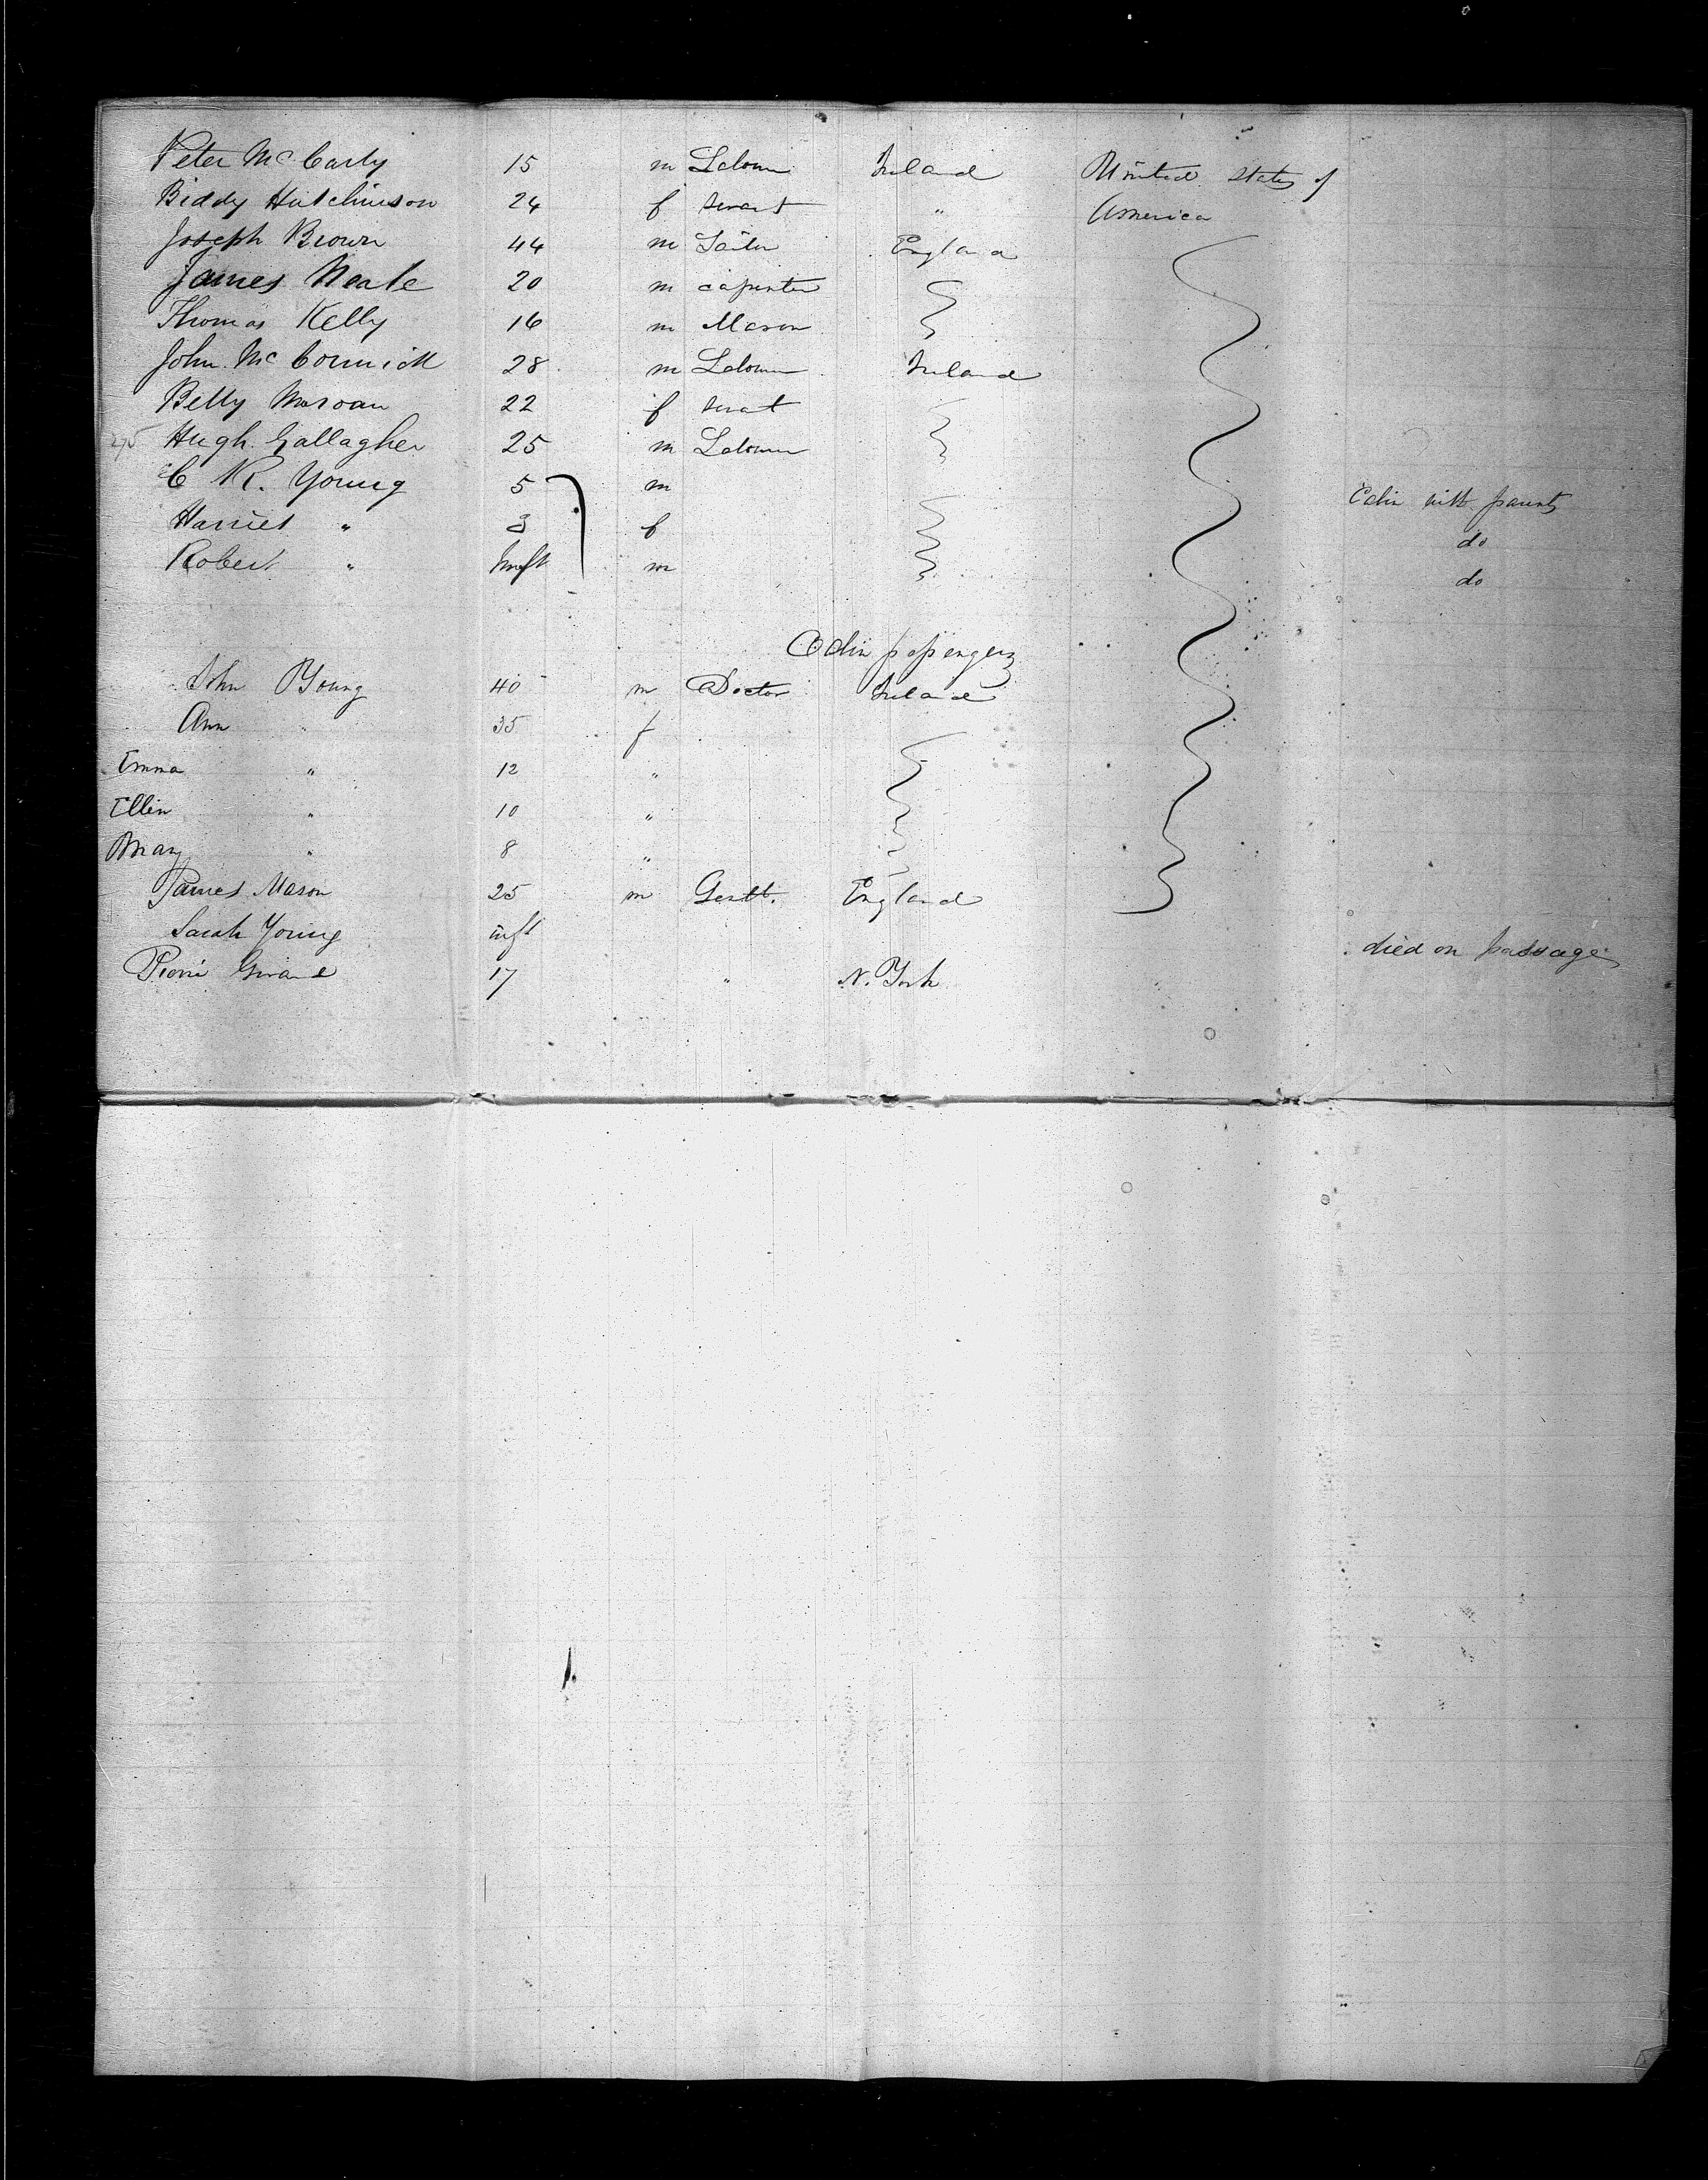 Peter McCarty 15 m Labourer Ireland United States of
Biddy Hutchinson 24 f servt " America
Joseph Brown 44 m Tailor England
James Neale 20 m carpinter
Thomas Kelly 16 m Mason
John McCormick 28 m Labourer Ireland
Betty 22 f servt
275 Hugh Gallagher 25 m Labourer
C R. Young 5 m Cabin with parents
Harriet " 3 f do
Robert " Infт m do
Cabin passengers
John Young 40 m Doctor Ireland
Ann 35 f
Emma " 12 "
Ellin " 10 "
Mary " 8 "
James Mason 25 m Gentt. England
Sarah Young inft died on passage
17 " N. York